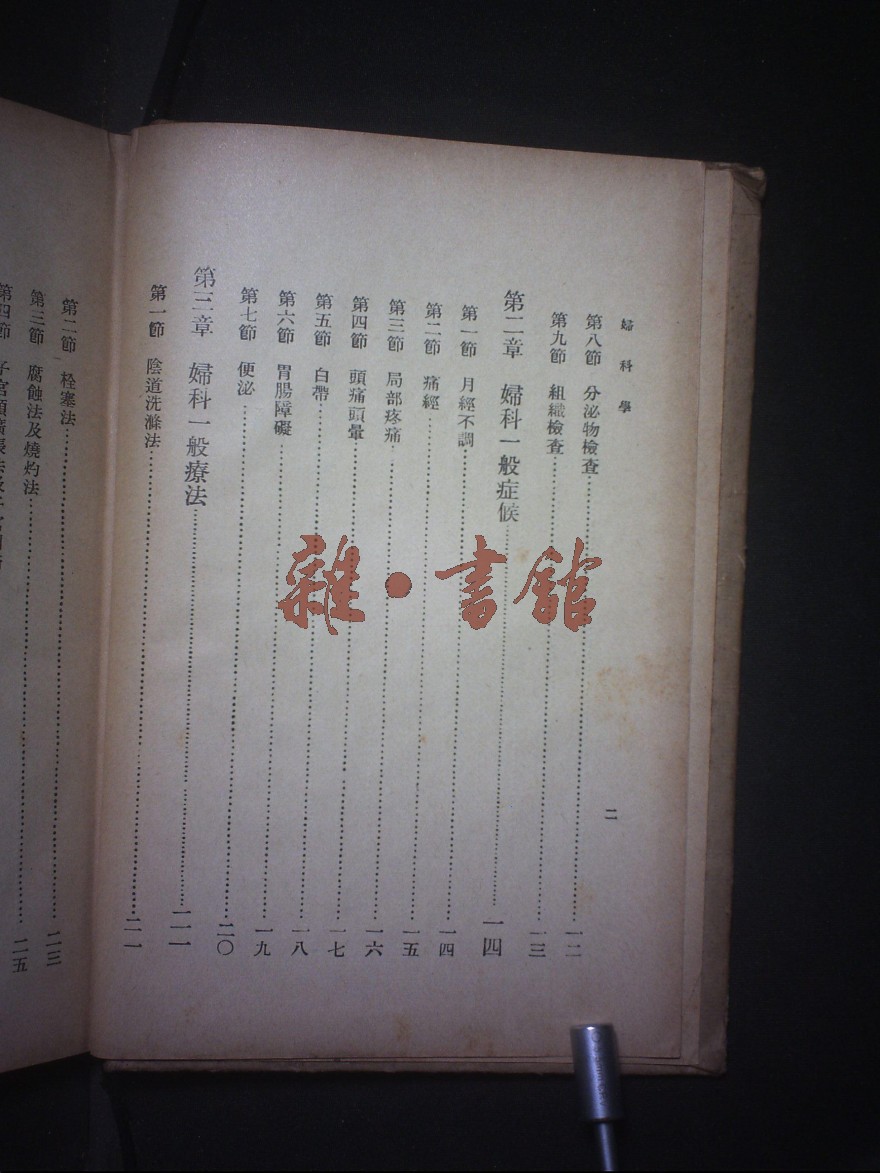 婦科學
二
第八節 分泌物檢查 一二
第九節 組織檢查 一三
第二章 婦科一般症候 一四
第一節 月經不調 一四
第二節 痛經 一五
第三節 局部疼痛 一六
第四節 頭痛頭暈 一七
第五節 白帶 一八
第六節 胃腸障礙 一九
第七節 便泌 二〇
第三章 婦科一般療法 二一
第一節 陰道洗滌法 二一
第二節 栓塞法 二三
第三節 腐蝕法及燒灼法 二五
第四節 子宮頸擴張法及子宮
雜·書館